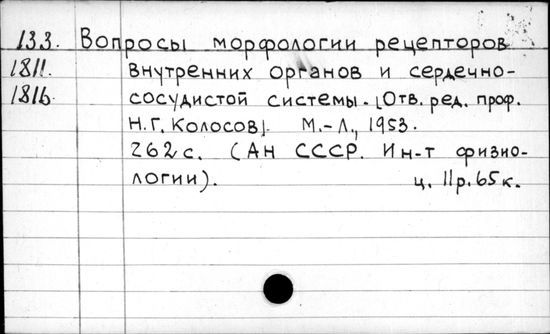 133. Вопросы морфологии рецепторов
1811. внутренних органов и сердечно-
1816 сосудистой системы. [Отв. ред. проф.
Н.Г. Колосов]. М.-Л., 1953.
262 с. (АН СССР. Ин-т физио-
логии). ц. 11р. 65к.